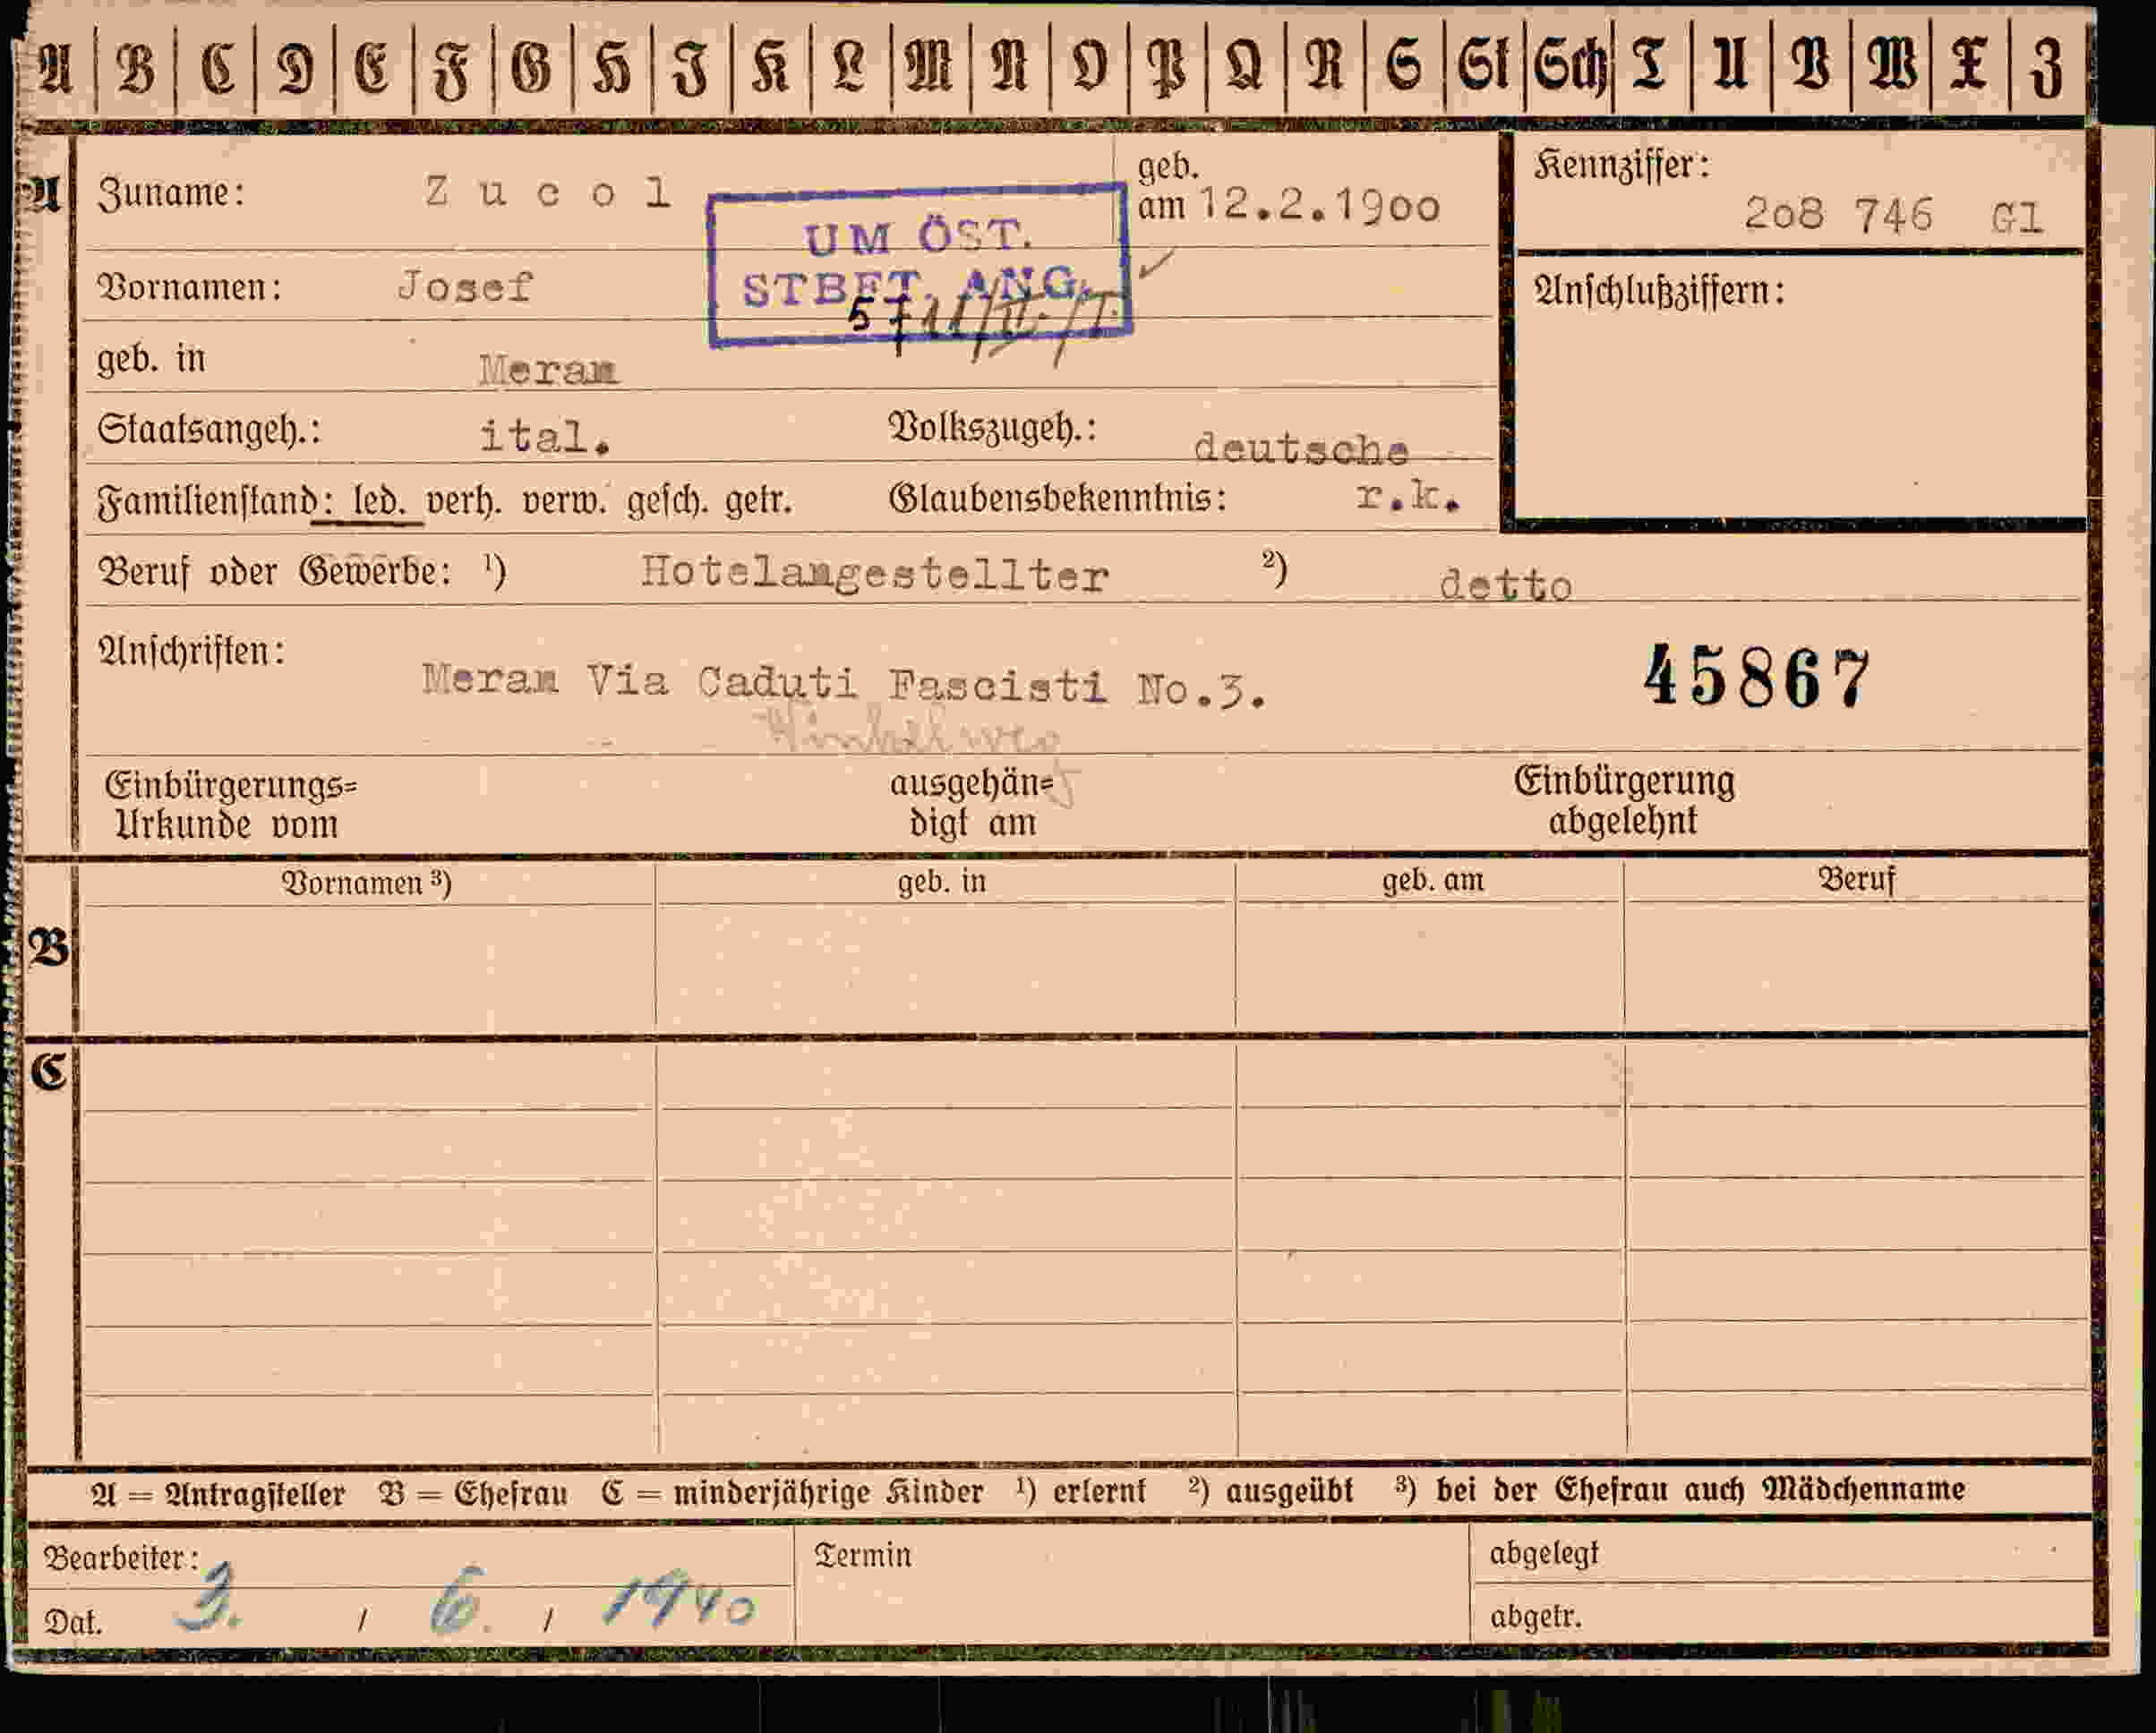 A B C D E F G H I K L M N O P Q R S St Sch T U V W X Z
A
Zuname: Zucol
geb. am 12.2.1900
Kennziffer: 208 746 Gl
UM ÖST.
STBFT. ANG.
Vornamen: Josef
Anschlußziffern:
geb. in Meran
Staatsangeh.: ital. Volkszugeh.: deutsche
Familienstand: led. verh. verw. gesch. getr. Glaubensbekenntnis: r.k.
Beruf oder Gewerbe: ¹) Hotelangestellter ²) detto
Anschriften: Meran Via Caduti Fascisti No.3. 45867
Winkelweg
Einbürgerungs= ausgehän= Einbürgerung
Urkunde vom digt am abgelehnt
Vornamen ³) geb. in geb. am Beruf
B
C
A = Antragsteller B = Ehefrau C = minderjährige Kinder ¹) erlernt ²) ausgeübt ³) bei der Ehefrau auch Mädchenname
Bearbeiter: Termin abgelegt
Dat. 3. / 6. / 1940 abgetr.